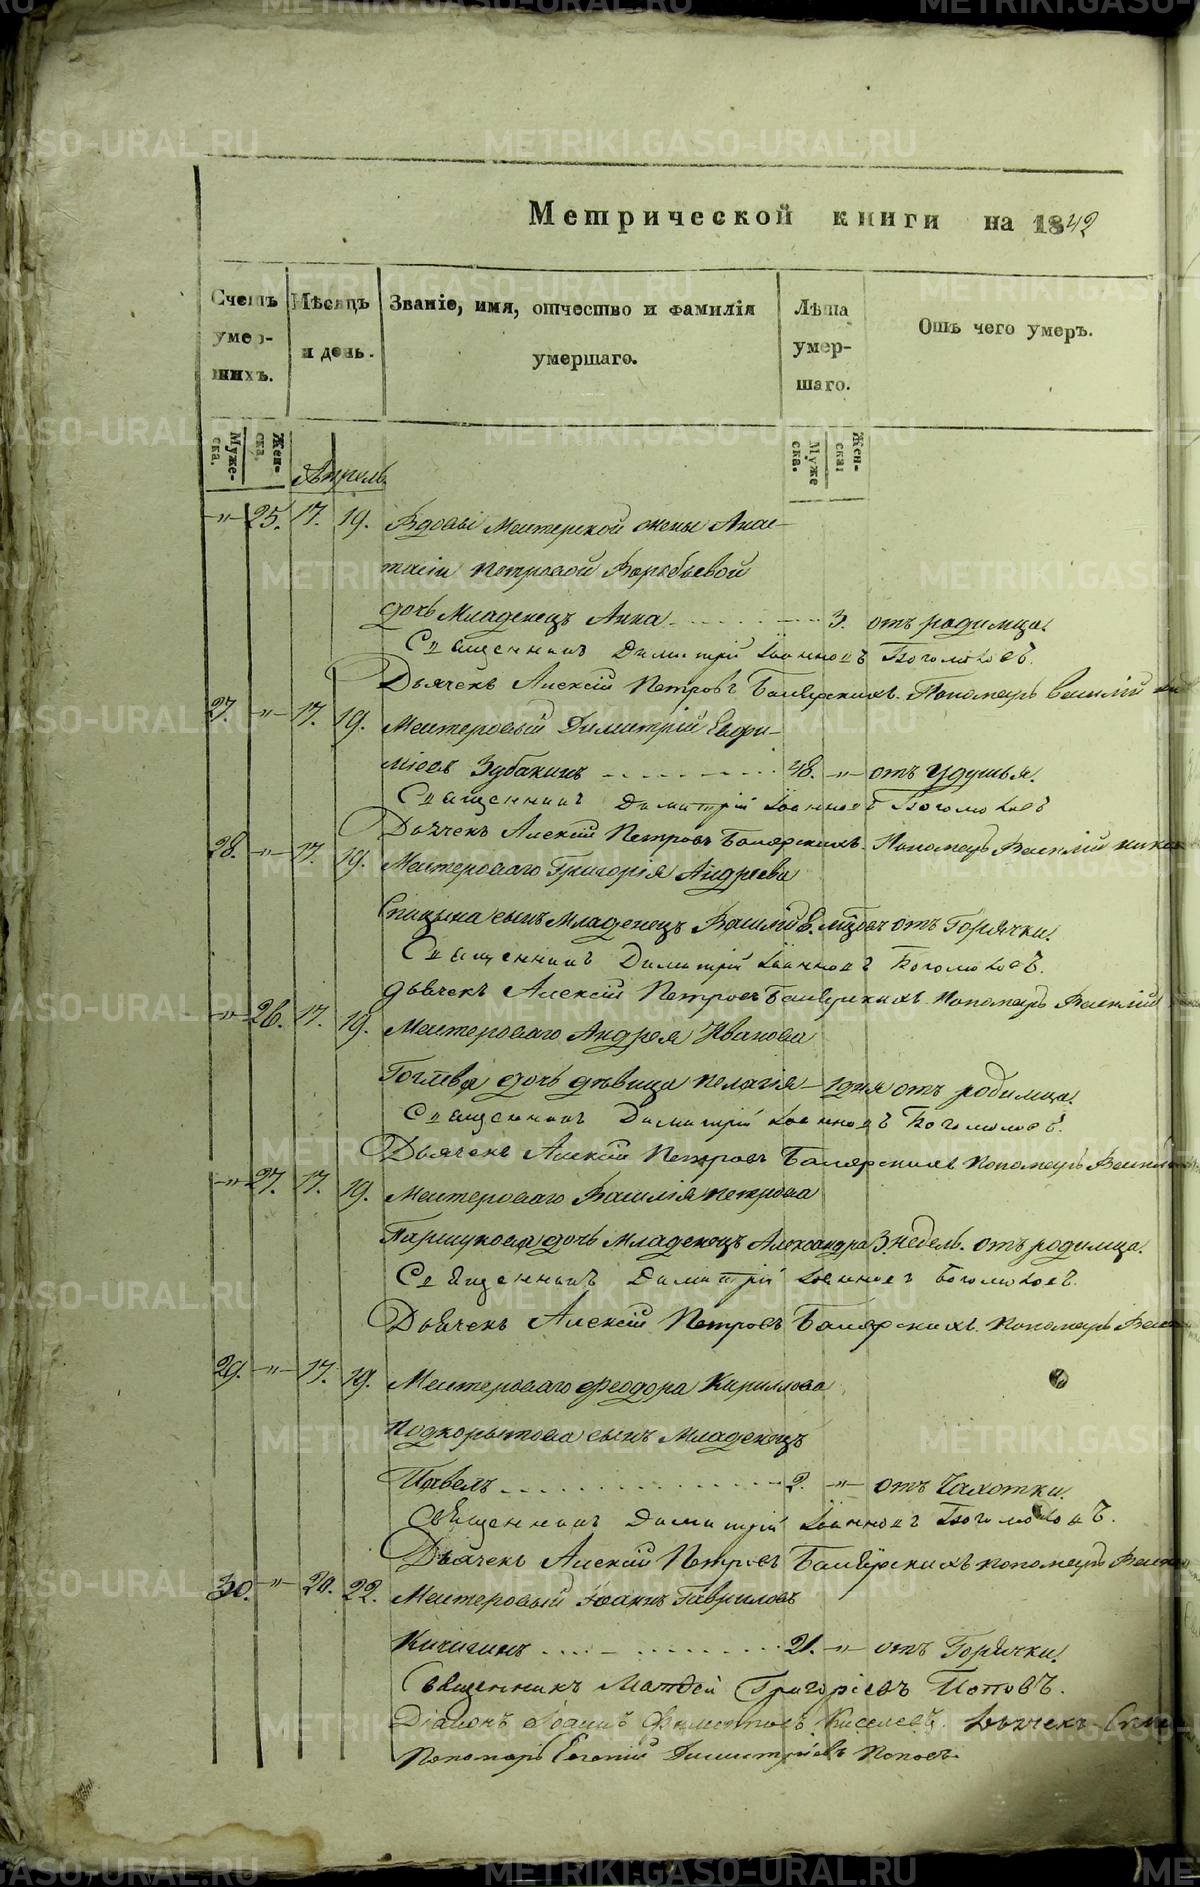 Метрической книги на 1842
Счетъ умершихъ.
Мѣсяцъ и день.
Званіе, имя, отчество и фамилія умершаго.
Лѣта умершаго.
Отъ чего умеръ.
Мужеска. Женска. Мужеска. Женска.
Апрель
-"- 25. 17. 19. Вдовы Мастерской жены Анас-
тасіи Петровой Воробьевой
дочь Младенецъ Анна 3. отъ родимца.
Священникъ Димитрій Іоанновъ Боголюбовъ.
Дьячекъ Алексій Петровъ Баиярскихъ. Пономарь Василій
27. -"- 17. 19. Мастеровый Димитрій Евфи-
міевъ Зубакинъ 48. -"- отъ Удушья.
Священникъ Димитрій Іоанновъ Боголюбовъ
Дьячекъ Алексій Петровъ Баиярскихъ. Пономарь Василій
28. -"- 17. 19. Мастероваго Григорія Андреева
Спицына сынъ Младенецъ Василій 8. мѣсяц. отъ Горячки.
Священникъ Димитрій Іоанновъ Боголюбовъ.
Дьячекъ Алексій Петровъ Баиярскихъ. Пономарь Василій
-"- 26. 17. 19. Мастероваго Андрея Иванова
Гоглева дочь дѣвица Пелагія 1 дня отъ родимца.
Священникъ Димитрій Іоанновъ Боголюбовъ.
Дьячекъ Алексій Петровъ Баиярскихъ Пономарь
-"- 27. 17. 19. Мастероваго Василія Петрова
Паршукова дочь Младенецъ Александра 3. недель. отъ родимца.
Священникъ Димитрій Іоанновъ Боголюбовъ.
Дьячекъ Алексій Петровъ Баиярскихъ. Пономарь
29. -"- 17. 19. Мастероваго Феодора Кириллова
Подкорытова сынъ Младенецъ
Павелъ 2. -"- отъ Чахотки.
Священникъ Димитрій Іоанновъ Боголюбовъ.
Дьячекъ Алексій Петровъ Баиярскихъ Пономарь
30. -"- 20. 22. Мастеровый Іоаннъ Гавриловъ
Кичигинъ 21. -"- отъ Горячки.
Священникъ Матѳей Григоріевъ Поповъ.
Діаконъ Іоаннъ Киселевъ. Дьячекъ
Пономарь Евгеній Димитріевъ Поповъ.
METRIKI.GASO-URAL.RU